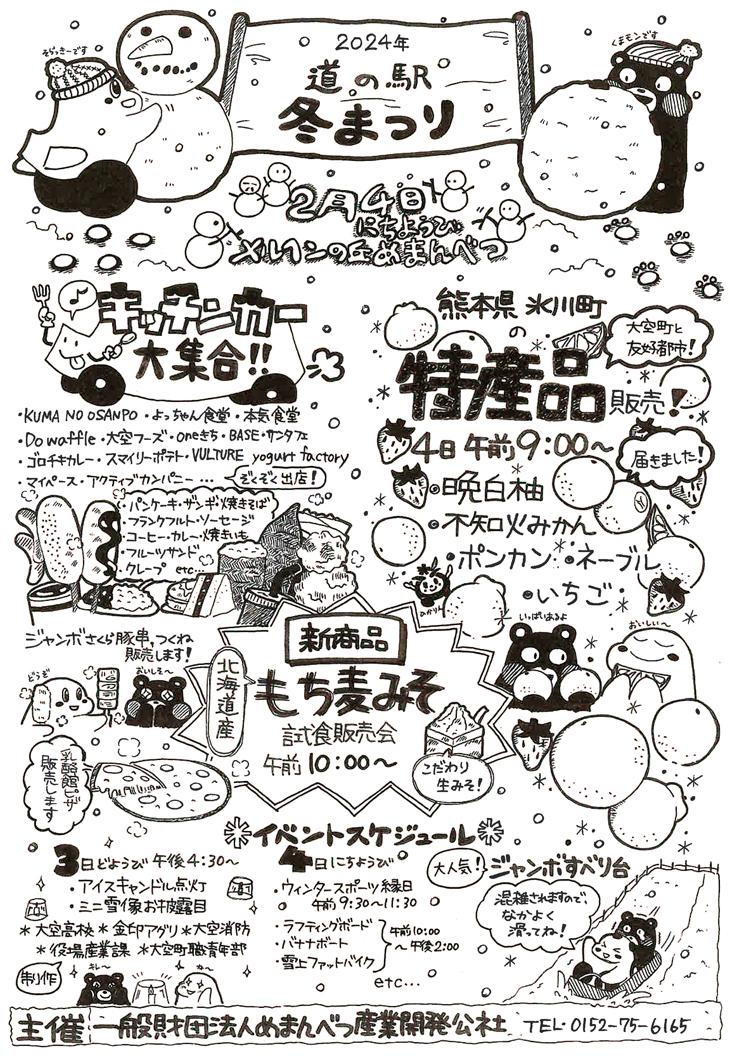 2024年
道の駅
冬まつり
そらっきーです
くまモンです
2月4日
にちようび
メルヘンの丘めまんべつ
キッチンカー
大集合!!
・KUMA NO OSANPO・よっちゃん食堂・本気食堂
・Do waffle・大空フーズ・oneきち・BASE・サンタフェ
・ゴロチキカレー・スマイリーポテト・VULTURE yogurt factory
・マイペース・アクティブカンパニー…
ぞくぞく出店!
・パンケーキ・ザンギ・焼きそば
・フランクフルト・ソーセージ
・コーヒー・カレー・焼きいも
・フルーツサンド
・クレープ etc
熊本県 氷川町
の
特産品
販売!
大空町と
友好都市!
4日 午前9:00〜
届きました!
・晩白柚
・不知火みかん
・ポンカン ・ネーブル
・いちご
ジャンボさくら豚串、つくね
販売します!
どうぞ
おいしそ〜
乳酪館ピザ
販売します
新商品
北海道産
もち麦みそ
試食販売会
午前10:00〜
こだわり
生みそ!
いっぱいあるよ
おいしい〜
イベントスケジュール
3日どようび 午後4:30〜
・アイスキャンドル点灯
・ミニ雪像お披露目
*大空高校 *金印アグリ *大空消防
*役場産業課 *大空町職青年部
制作
キレ〜
わ〜
4日にちようび
・ウィンタースポーツ縁日
午前9:30〜11:30
・ラフティングボード
・バナナボート
・雪上ファットバイク
午前10:00
〜午後2:00
etc…
大人気!
ジャンボすべり台
混雑されますので、
なかよく
滑ってね!
主催 一般財団法人めまんべつ産業開発公社 TEL・0152-75-6165